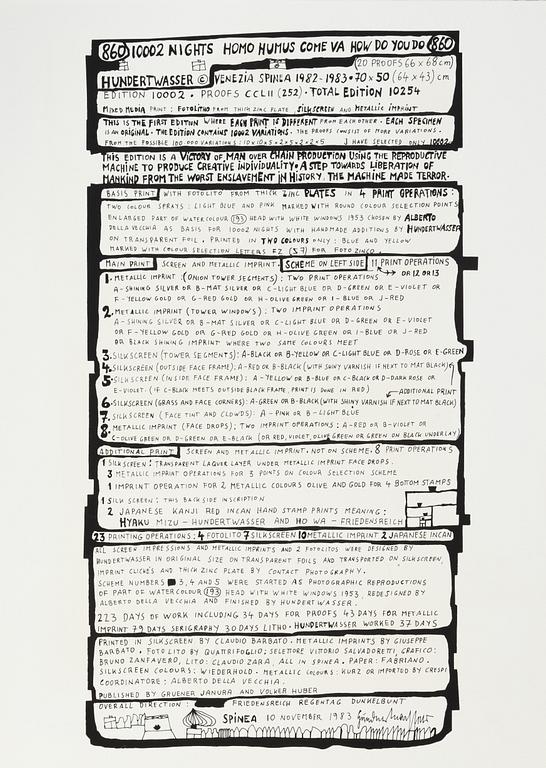 860 10002 NIGHTS HOMO HUMUS COME VA HOW DO YOU DO 860
(20 PROOFS 66 x 68 cm)
HUNDERTWASSER © VENEZIA SPINEA 1982-1983 • 70 x 50 (64 x 43) cm
EDITION 10002 • PROOFS CCLII (252) • TOTAL EDITION 10254
MIXED MEDIA PRINT: FOTOLITHO FROM THICK ZINC PLATE SILKSCREEN AND METALLIC IMPRINT
THIS IS THE FIRST EDITION WHERE EACH PRINT IS DIFFERENT FROM EACH OTHER. EACH SPECIMEN
IS AN ORIGINAL. THE EDITION CONTAINS 10002 VARIATIONS. THE PROOFS CONSIST OF MORE VARIATIONS.
FROM THE POSSIBLE 100 000 VARIATIONS: I HAVE SELECTED ONLY 10002
THIS EDITION IS A VICTORY OF MAN OVER CHAIN PRODUCTION USING THE REPRODUCTIVE
MACHINE TO PRODUCE CREATIVE INDIVIDUALITY. A STEP TOWARDS LIBERATION OF
MANKIND FROM THE WORST ENSLAVEMENT IN HISTORY. THE MACHINE MADE TERROR.
BASIS PRINT WITH FOTOLITO FROM THICK ZINC PLATES IN 4 PRINT OPERATIONS:
TWO COLOUR SPRAYS: LIGHT BLUE AND PINK MARKED WITH ROUND COLOUR SELECTION POINTS
ENLARGED PART OF WATERCOLOUR (193) HEAD WITH WHITE WINDOWS 1953 CHOSEN BY ALBERTO
DELLA VECCHIA AS BASIS FOR 10002 NIGHTS WITH HANDMADE ADDITIONS BY HUNDERTWASSER
ON TRANSPARENT FOIL. PRINTED IN TWO COLOURS ONLY: BLUE AND YELLOW
MARKED WITH COLOUR SELECTION LETTERS FZ (57) FOR FOTO ZINCO
MAIN PRINT SCREEN AND METALLIC IMPRINT. SCHEME ON LEFT SIDE 11 PRINT OPERATIONS
OR 12 OR 13
1. METALLIC IMPRINT (ONION TOWER SEGMENTS): TWO PRINT OPERATIONS
A-SHINING SILVER OR B-MAT SILVER OR C-LIGHT BLUE OR D-GREEN OR E-VIOLET OR
F-YELLOW GOLD OR G-RED GOLD OR H-OLIVE GREEN OR I-BLUE OR J-RED
2. METALLIC IMPRINT (TOWER WINDOWS): TWO IMPRINT OPERATIONS
A-SHINING SILVER OR B-MAT SILVER OR C-LIGHT BLUE OR D-GREEN OR E-VIOLET
OR F-YELLOW GOLD OR G-RED GOLD OR H-OLIVE GREEN OR I-BLUE OR J-RED
OR BLACK SHINING IMPRINT WHERE TWO SAME COLOURS MEET
3. SILKSCREEN (TOWER SEGMENTS): A-BLACK OR B-YELLOW OR C-LIGHT BLUE OR D-ROSE OR E-GREEN
4. SILKSCREEN (OUTSIDE FACE FRAME): A-RED OR B-BLACK (WITH SHINY VARNISH IF NEXT TO MAT BLACK)
5. SILKSCREEN (INSIDE FACE FRAME): A-YELLOW OR B-BLUE OR C-BLACK OR D-DARK ROSE OR
E-VIOLET. (IF C-BLACK MEETS OUTSIDE BLACK FRAME, PRINT IS DONE IN RED) ADDITIONAL PRINT
6. SILKSCREEN (GRASS AND FACE CORNERS): A-GREEN OR B-BLACK (WITH SHINY VARNISH IF NEXT TO MAT BLACK)
7. SILKSCREEN (FACE TINT AND CLOWDS): A-PINK OR B-LIGHT BLUE
8. METALLIC IMPRINT (FACE DROPS); TWO IMPRINT OPERATIONS: A-RED OR B-VIOLET OR
C-OLIVE GREEN OR D-GREEN OR E-BLACK (OR RED, VIOLET, OLIVE GREEN OR GREEN ON BLACK UNDERLAY)
ADDITIONAL PRINT SCREEN AND METALLIC IMPRINT. NOT ON SCHEME. 8 PRINT OPERATIONS
1 SILKSCREEN: TRANSPARENT LAQUER LAYER UNDER METALLIC IMPRINT FACE DROPS.
3 METALLIC IMPRINT OPERATIONS FOR 3 POINTS ON COLOUR SELECTION SCHEME
1 IMPRINT OPERATION FOR 2 METALLIC COLOURS OLIVE AND GOLD FOR 4 BOTTOM STAMPS
1 SILK SCREEN: THIS BACK SIDE INSCRIPTION
2 JAPANESE KANJI RED INCAN HAND STAMP PRINTS MEANING:
HYAKU MIZU - HUNDERTWASSER AND HO WA - FRIEDENSREICH
23 PRINTING OPERATIONS; 4 FOTOLITO 7 SILKSCREEN 10 METALLIC IMPRINT 2 JAPANESE INCAN
ALL SCREEN IMPRESSIONS AND METALLIC IMPRINTS AND 2 FOTOLITOS WERE DESIGNED BY
HUNDERTWASSER IN ORIGINAL SIZE ON TRANSPARENT FOILS AND TRANSPORTED ON SILKSCREEN,
IMPRINT CLICHÉS AND THICK ZINC PLATE BY CONTACT PHOTOGRAPHY.
SCHEME NUMBERS 3, 4 AND 5 WERE STARTED AS PHOTOGRAPHIC REPRODUCTIONS
OF PART OF WATERCOLOUR (193) HEAD WITH WHITE WINDOWS 1953, REDESIGNED BY
ALBERTO DELLA VECCHIA AND FINISHED BY HUNDERTWASSER.
223 DAYS OF WORK INCLUDING 34 DAYS FOR PROOFS 43 DAYS FOR METALLIC
IMPRINT 79 DAYS SERIGRAPHY 30 DAYS LITHO. HUNDERTWASSER WORKED 37 DAYS
PRINTED IN SILKSCREEN BY CLAUDIO BARBATO. METALLIC IMPRINTS BY GIUSEPPE
BARBATO. FOTO LITO BY QUATTRIFOGLIO; SELETTORE VITTORIO SALVADORETTI, GRAFICO:
BRUNO ZANFAVERO, LITO: CLAUDIO ZARA, ALL IN SPINEA. PAPER: FABRIANO.
SILKSCREEN COLOURS: WIEDERHOLD. METALLIC COLOURS: KURZ OR IMPORTED BY CRESPI
COORDINATORE: ALBERTO DELLA VECCHIA.
PUBLISHED BY GRUENER JANURA AND VOLKER HUBER
OVERALL DIRECTION: FRIEDENSREICH REGENTAG DUNKELBUNT
SPINEA 10 NOVEMBER 1983